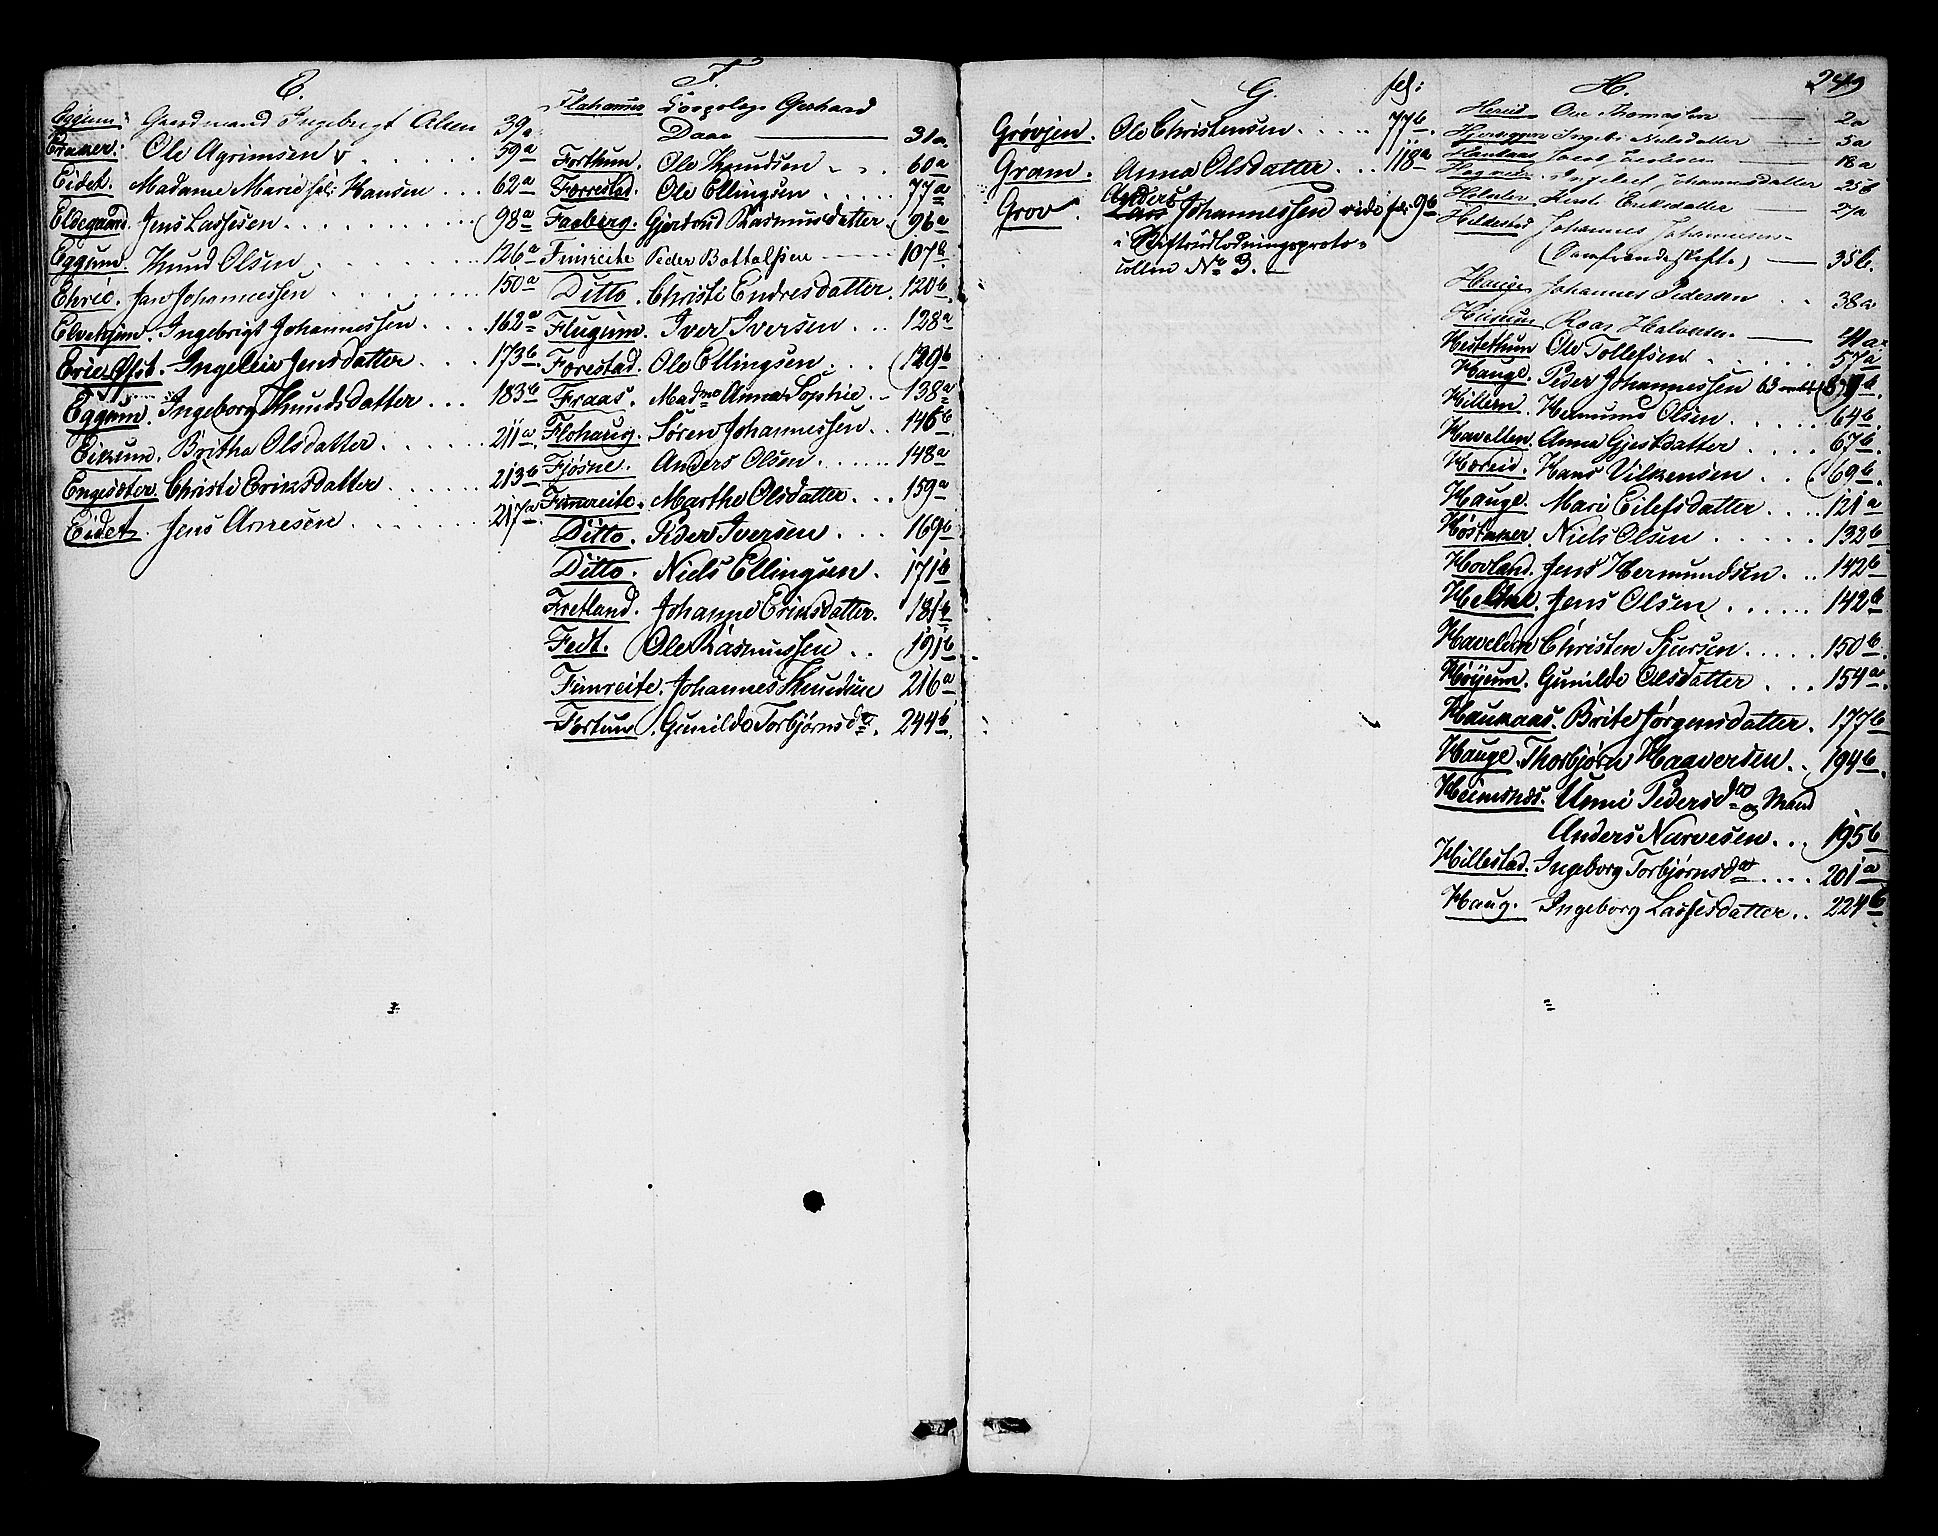 E.
Eggum: Gaardmand Ingebrigt Olsen 39a
Eraker: Ole Agrimsen 59a
Eidet. Madame Marie fôl: Hansen 62a
Eldegaard. Jens Lassesen 98a
Eggum. Knud Olsen 126a
Ehrie. Jan Johannessen 150a
Elvekjen. Ingebrigt Johannessen 162a
Erie Øst. Ingeleiv Jensdatter 173b
Eggum. Ingeborg Knudsdatter 183b
Eikum. Britha Olsdatter 211a
Engesæter. Christi Eriksdatter 213b
Eidet. Jens Arnesen 217a
F.
Flahammer Gerhard
Daae 31a
Forthum. Ole Knudsen 60a
Forrestad. Ole Ellingsen 77a
Faaberg. Gjertrud Rasmusdatter 96a
Fimreite Peder Bottolfsen 107b
Ditto. Christi Endresdatter. 120b
Flugum. Iver Iversen 128a
Forestad. Ole Ellingsen 129b
Fraas. Madme Anna Sophie 138a
Flohaug. Søren Johannessen 146b
Fjøsne. Anders Olsen 148a
Fimreite. Marthe Olsdatter 159a
Ditto. Peder Iversen 169b
Ditto. Niels Ellingsen. 171b
Fretland. Johanne Eriksdatter. 181b
Fedt. Ole Rasmussen 191b
Fimreite. Johannes Knudsen 216a
Fortun. Gunilde Torbjørnsdtr. 244b
G. fol:
Grøvjen. Ole Christensen 77b
Gram. Anna Olsdatter 118a
Anders
Grov. Lars Johannessen vide fol: 9b
i Skifteudlodningsproto-
collen No 3.
H. 249
Hereid Ove Thomassen 2a
Ingeb: Nielsdatter 5a
Haukaas Jacob 18a
Johannesdatter 25b
Kirsti Eriksdatter 27a
Hillestad Johannes Johannesen
(Samfrendeskifte.) 35b.
Hauge Johannes Pedersen 38a
Roar Halvorsen 41a
Hestethum Ole Tollefsen 57a
Hauge. Peder Johannessen 63
Hillern. Hermund Olsen 64b
Havellen. Anna Gjertsdatter 67b
Høreid. Hans Vilkensen 69b
Hauge. Mari Eilefsdatter 121a
Høstaker. Niels Olsen 132b
Hovland. Jens Hermundsen 142b
Jens Olsen 142b
Havelern Christen Sjursen 150b
Høyum. Gunilde Olsdatter 154a
Haukaas. Brite Jørgensdatter. 177b
Hauge. Thorbjørn Haaversen 194b
Heimsnæs. Unni Pedersdtr og Mand
Anders Narvesen 195b
Hillestad. Ingeborg Torbjørnsdatr 201a
Haug. Ingeborg Lassesdatter 224b